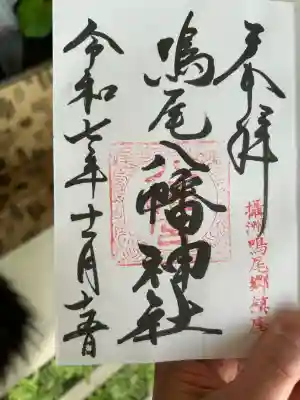 奉拝
攝洲鳴尾郷鎮座
鳴尾八幡神社
令和七年十一月十五日